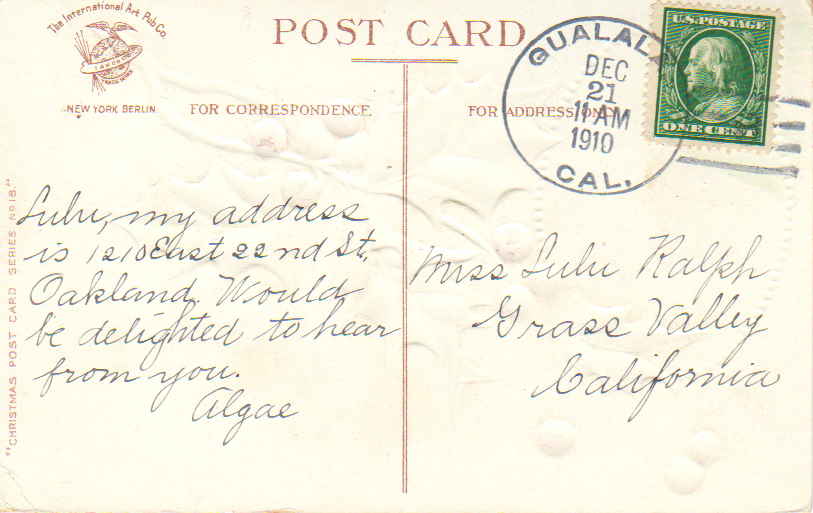 The International Art Pub Co.
NEW YORK BERLIN
POST CARD
FOR CORRESPONDENCE
FOR ADDRESS ONLY
GUALALA
DEC
21
11 AM
1910
CAL.
U.S. POSTAGE
ONE CENT
"CHRISTMAS POST CARD SERIES No 18."
Lulu, my address
is 1210 East 22nd St,
Oakland. Would
be delighted to hear
from you.
Algae
Miss Lulu Ralph
Grass Valley
California